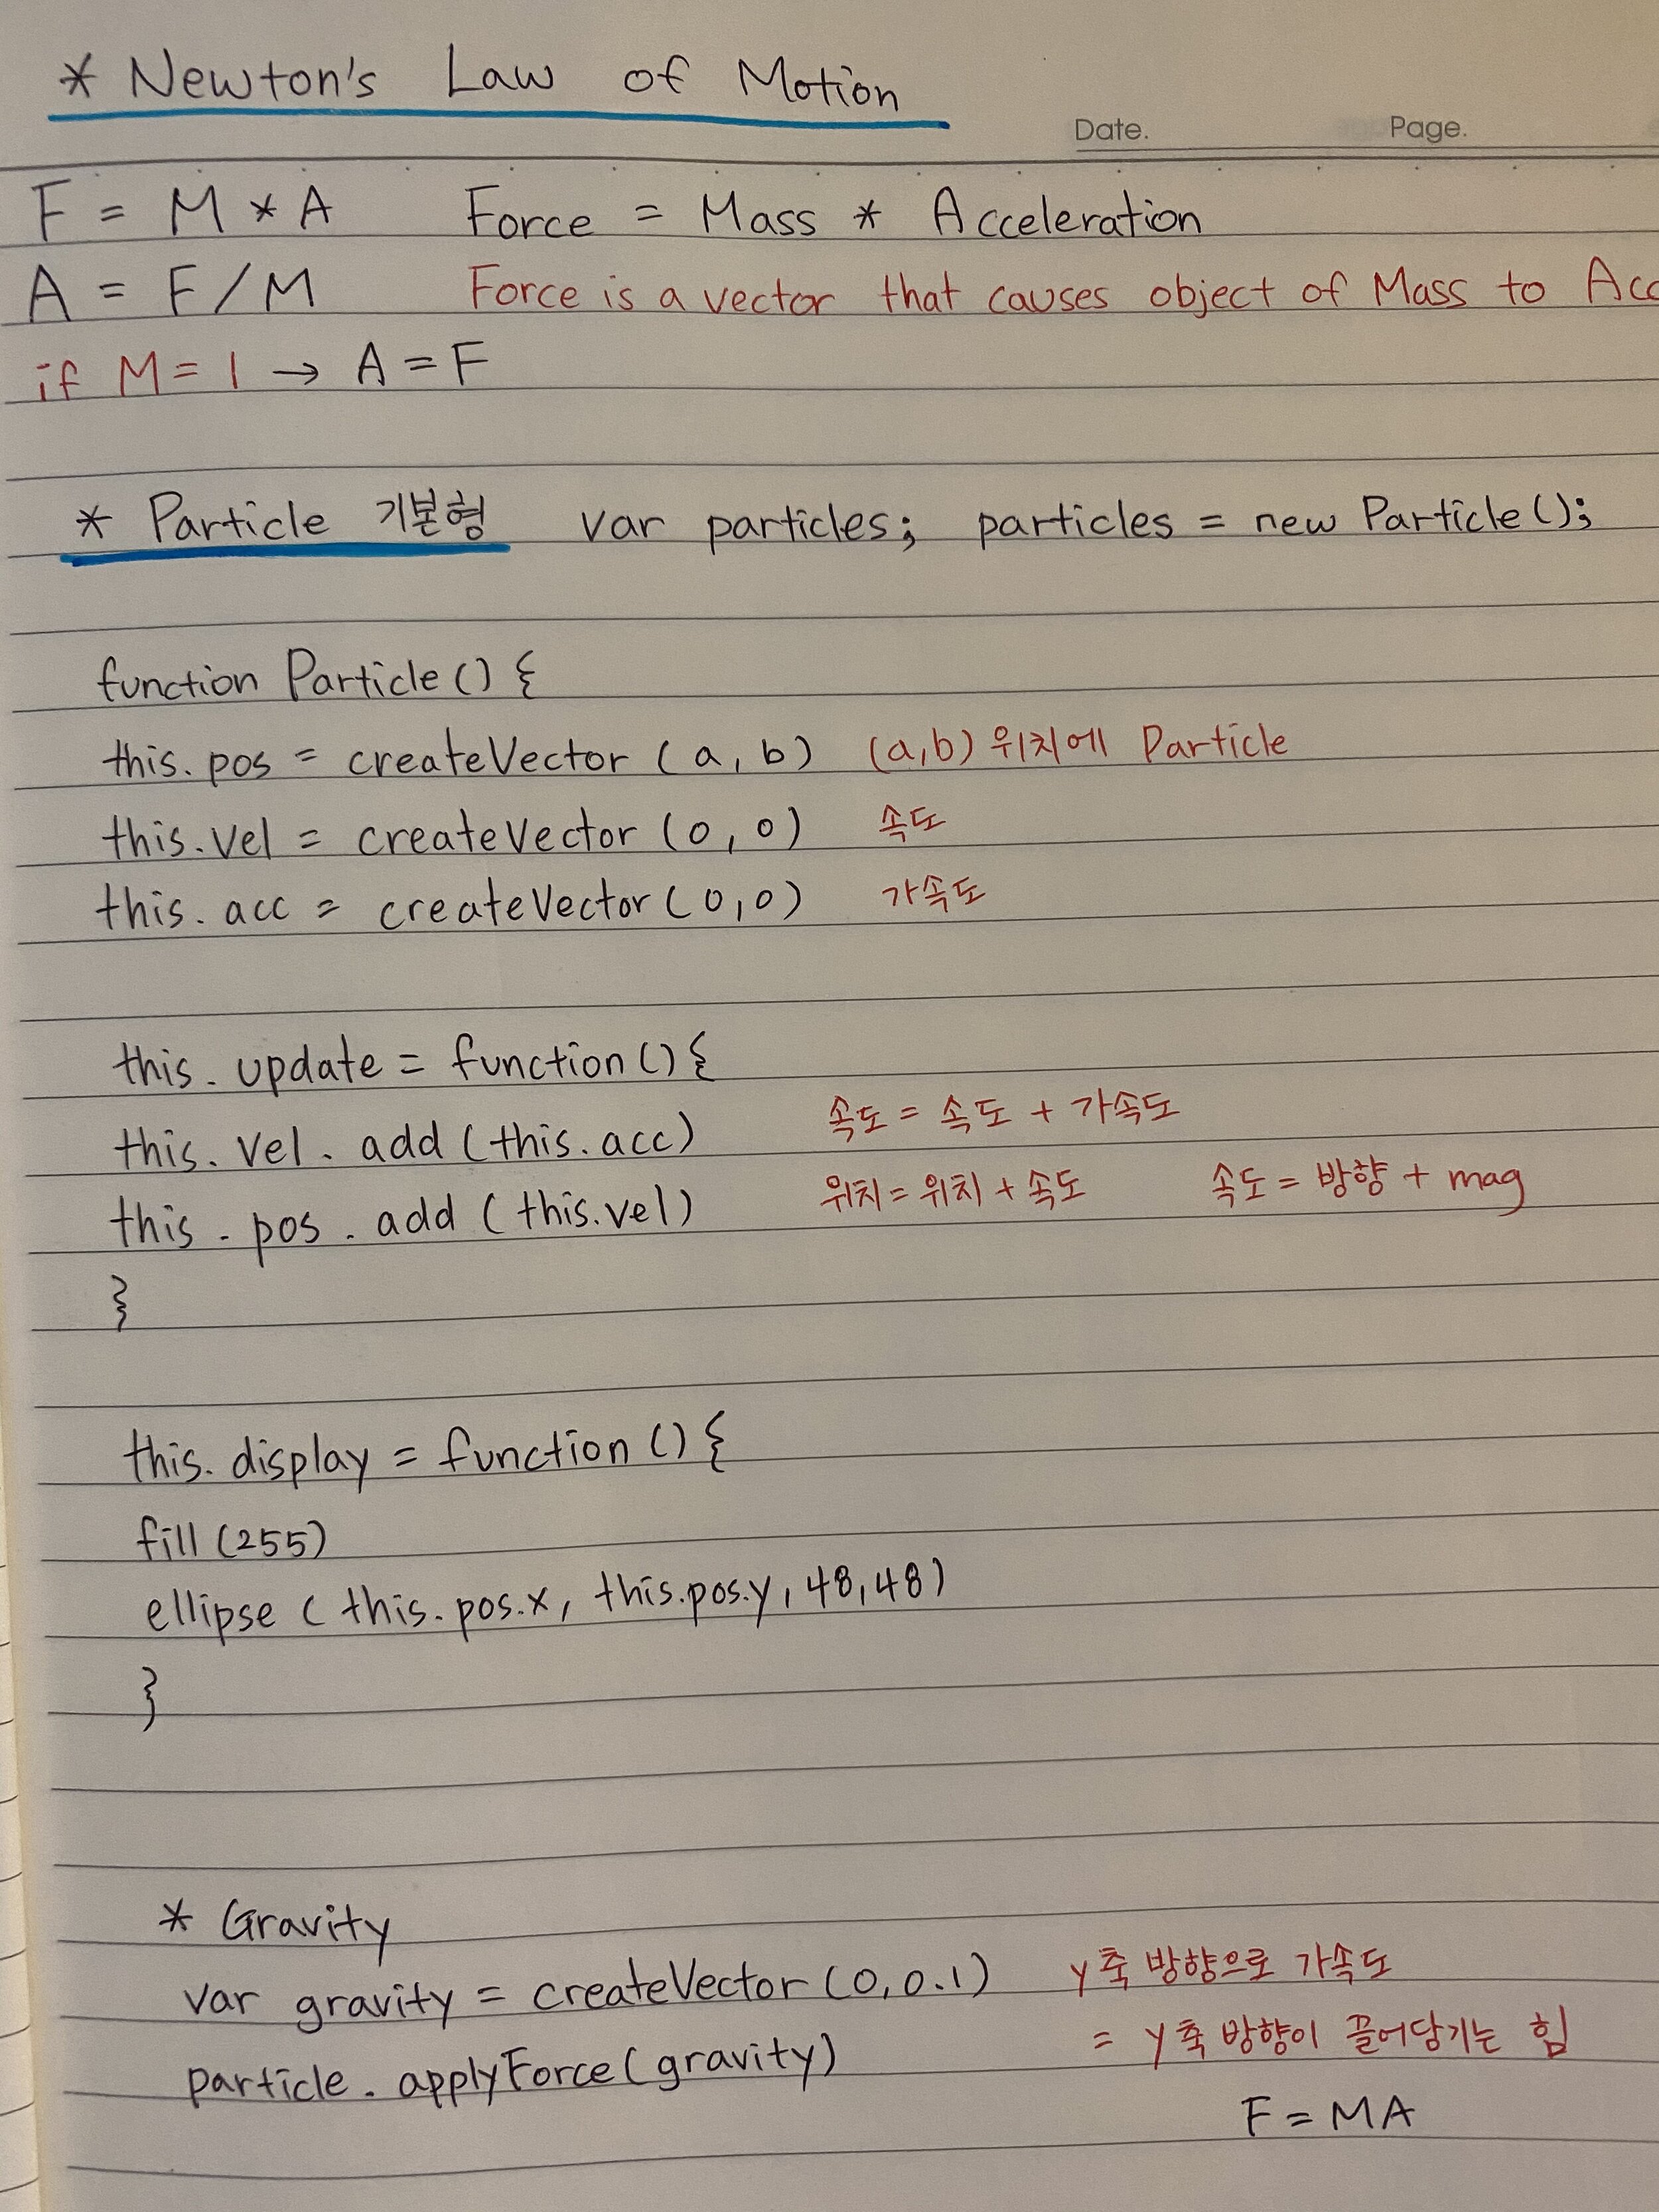 * Newton's Law of Motion
Date. Page.
F = M * A Force = Mass * Acceleration
A = F / M Force is a vector that causes object of Mass to Acc
if M = 1 → A = F
* Particle 기본형 var particles; particles = new Particle();
function Particle() {
this.pos = createVector (a, b) (a,b) 위치에 Particle
this.vel = createVector (0, 0) 속도
this.acc = createVector (0,0) 가속도
this.update = function() {
this.vel.add (this.acc) 속도 = 속도 + 가속도
this.pos.add (this.vel) 위치 = 위치 + 속도 속도 = 방향 + mag
}
this.display = function () {
fill (255)
ellipse ( this.pos.x, this.pos.y, 48, 48)
}
* Gravity
var gravity = createVector (0, 0.1) y축 방향으로 가속도
= y축 방향이 끌어당기는 힘
particle.applyForce (gravity)
F = MA